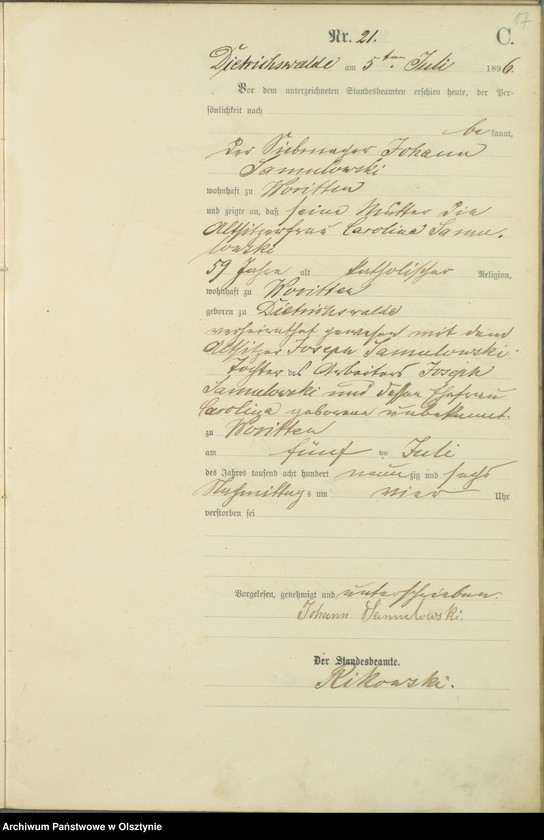 57
Nr. 21.
C.
Dietrichswalde am 5ten Juli 1896.
Vor dem unterzeichneten Standesbeamten erschien heute, der Per-
sönlichkeit nach
bekannt,
der Johann
Samulowski
wohnhaft zu Woritten
und zeigte an, daß seine Mutter die
Altsitzerfrau Carolina Samu-
lowski
59 Jahre alt katholischer Religion,
wohnhaft zu Woritten
geboren zu Dietrichswalde
verheirathet gewesen mit dem
Altsitzer Joseph Samulowski
Tochter des Arbeiters Joseph
Samulowski und dessen Ehefrau
Carolina geborene unbekannt.
zu Woritten
am fünf ten Juli
des Jahres tausend acht hundert neunzig und sechs
Nachmittags um vier Uhr
verstorben sei
Vorgelesen, genehmigt und unterschrieben.
Johann Samulowski.
Der Standesbeamte.
Rikowski.
Archiwum Państwowe w Olsztynie